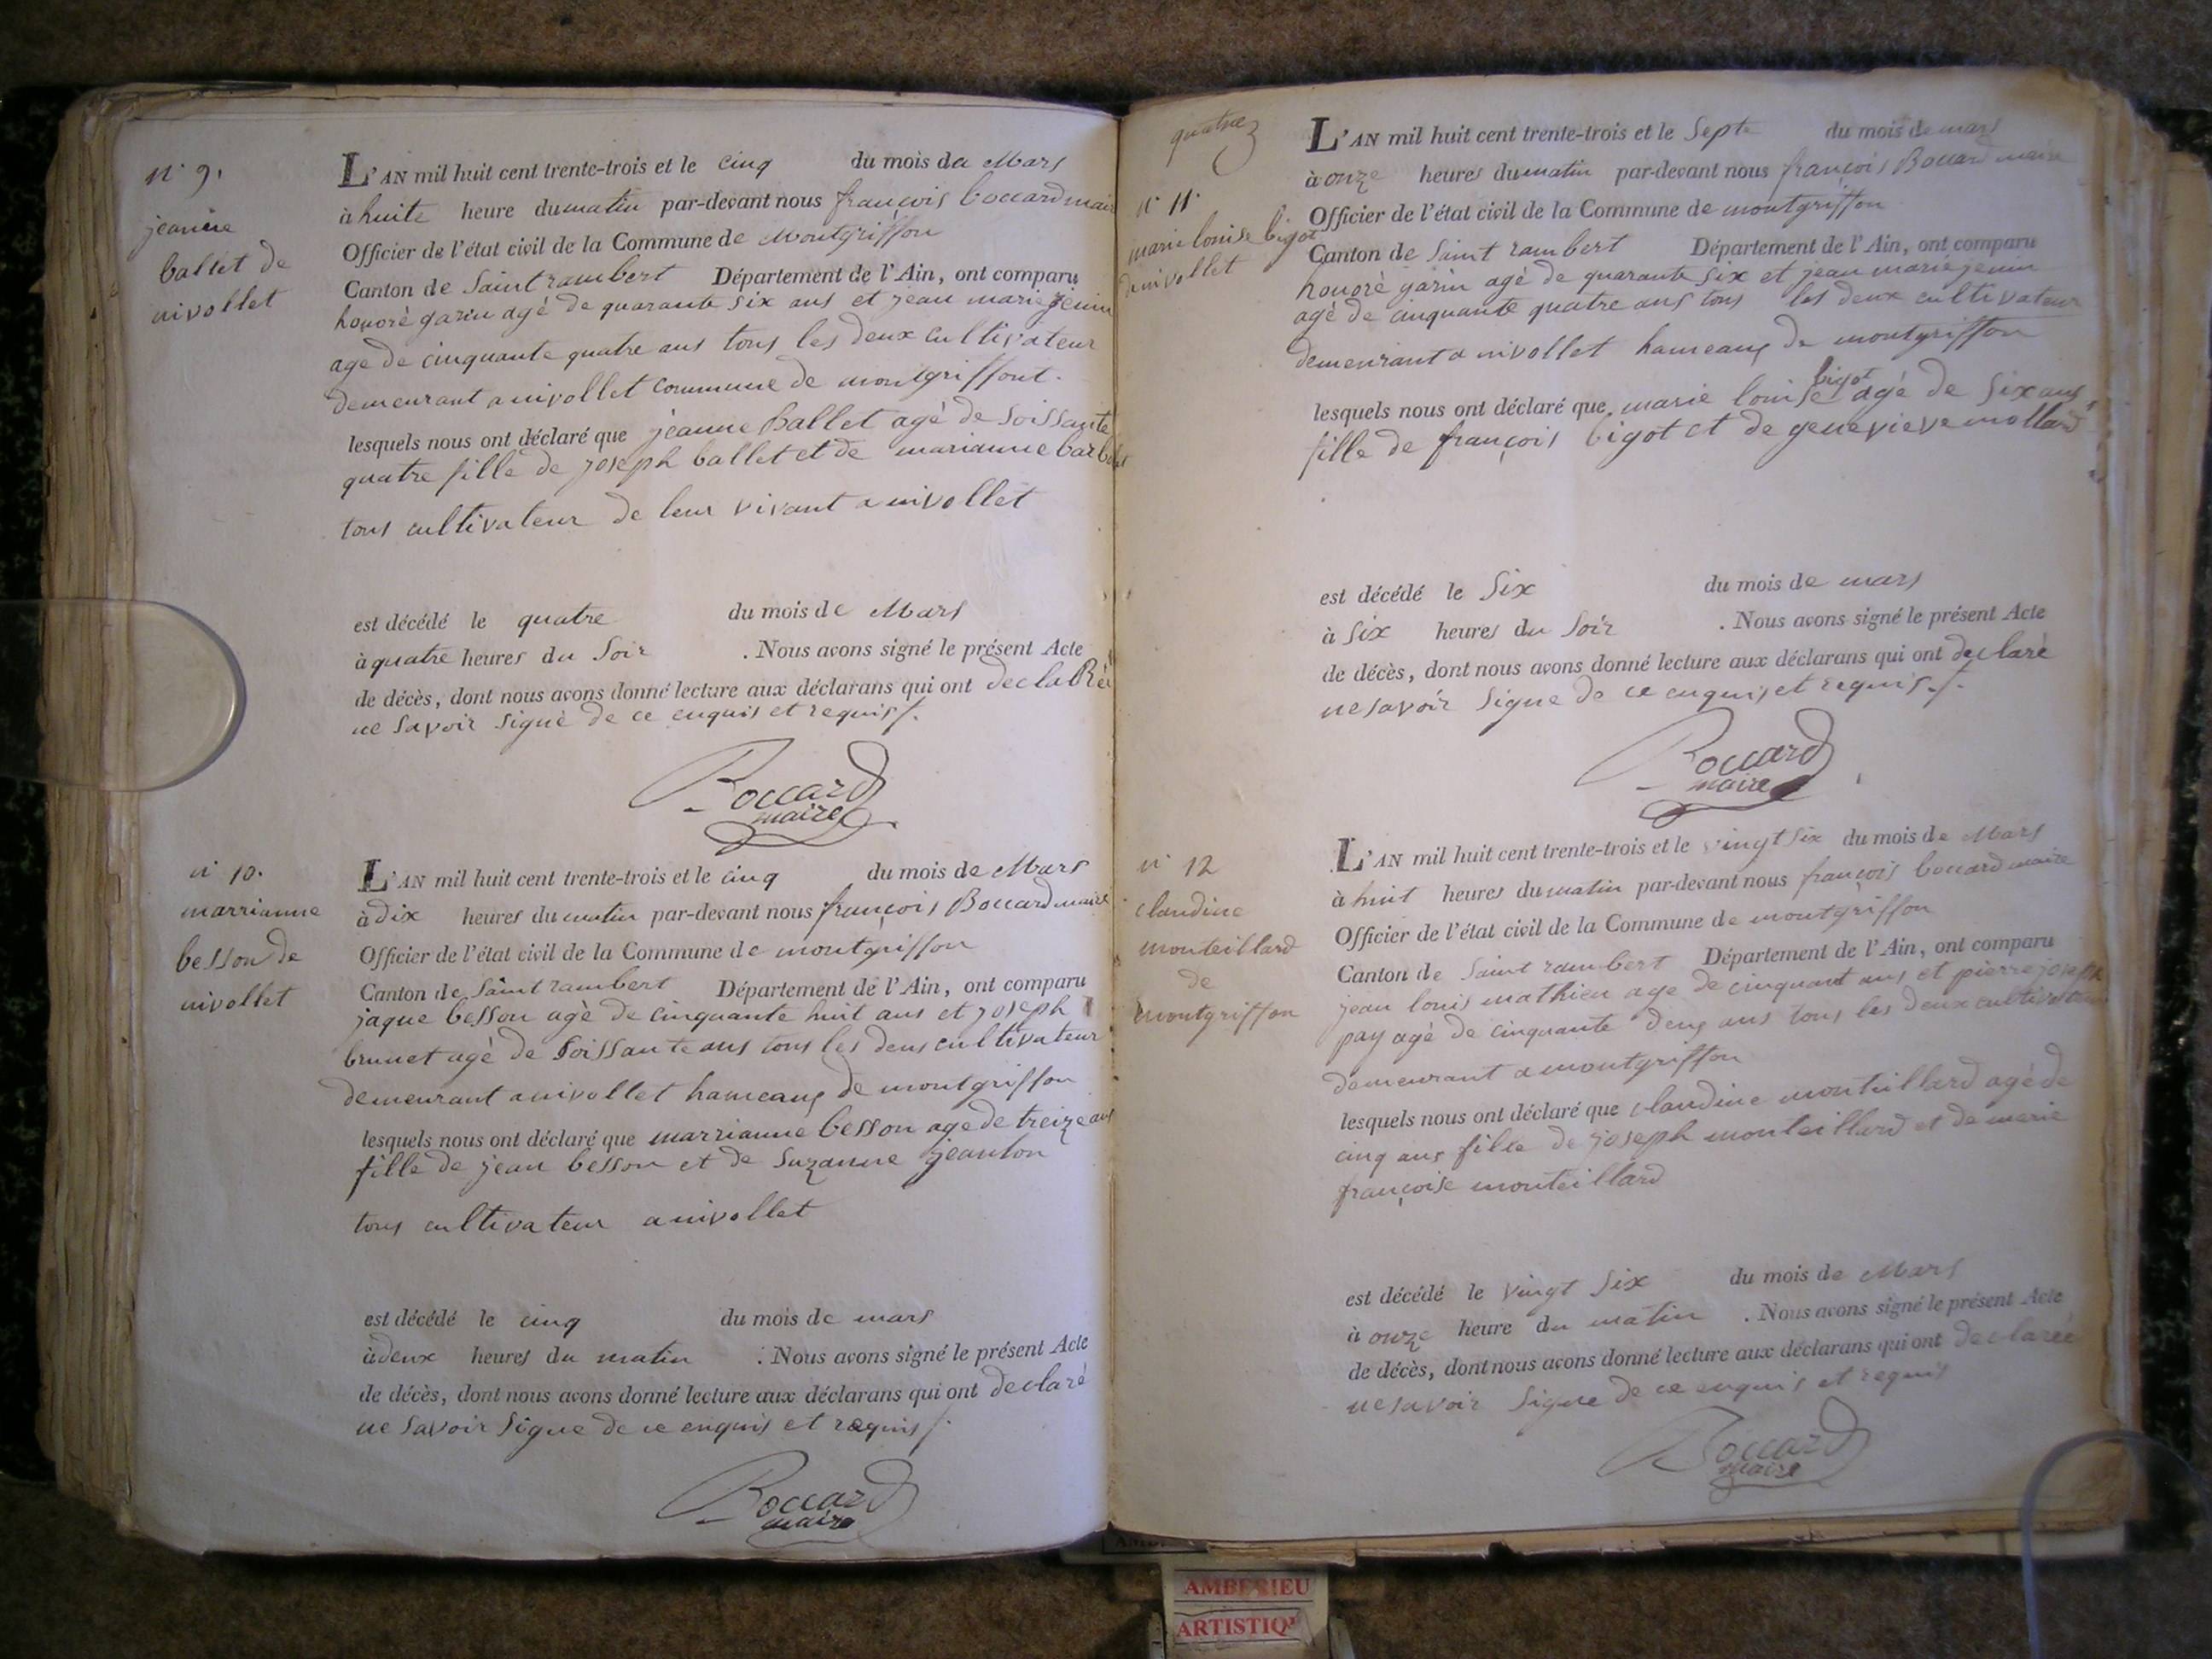 n° 9.
jeanne
ballet de
nivollet
L'AN mil huit cent trente-trois et le cinq du mois de Mars
à huite heure du matin par-devant nous françois boccard mair
Officier de l'état civil de la Commune de Montgriffon
Canton de Saint rambert Département de l'Ain, ont comparu
honorè garin agé de quarante six ans et jean marie jenin
age de cinquante quatre ans tous les deux cultivateur
demeurant a nivollet commune de montgriffont.
lesquels nous ont déclaré que jeanne ballet agè de soissante
quatre fille de joseph ballet et de marianne
tous cultivateur de leur vivant a nivollet
est décédé le quatre du mois de Mars
à quatre heures du soir . Nous avons signé le présent Acte
de décès, dont nous avons donné lecture aux déclarans qui ont declaRè
ne savoir signè de ce enquis et requis /.
Boccard
maire
n° 10.
marrianne
besson de
nivollet
L'AN mil huit cent trente-trois et le cinq du mois de Mars
à dix heures du matin par-devant nous françois Boccard maire
Officier de l'état civil de la Commune de montgriffon
Canton de Saint rambert Département de l'Ain, ont comparu
jaque besson agè de cinquante huit ans et joseph
brunet agè de soissante ans tous les deus cultivateur
demeurant a nivollet hameaux de montgriffon
lesquels nous ont déclaré que marrianne besson age de treize ans
fille de jean besson et de Suzanne jeanton
tous cultivateur a nivollet
est décédé le cinq du mois de mars
à deux heures du matin . Nous avons signé le présent Acte
de décès, dont nous avons donné lecture aux déclarans qui ont declarè
ne savoir signe de ce enquis et requis /.
Boccard
maire
quatre
n° 11.
marie louise bigot
de nivollet
L'AN mil huit cent trente-trois et le Septe du mois de mars
à onze heures du matin par-devant nous françois Boccard maire
Officier de l'état civil de la Commune de montgriffon
Canton de Saint rambert Département de l'Ain, ont comparu
honorè garin agè de quarante six et jean marie jenin
agè de cinquante quatre ans tous les deux cultivateur
demeurant a nivollet hameaux de montgriffon
bigot
lesquels nous ont déclaré que marie louise agè de six ans
fille de françois bigot et de genevieve mollard
est décédé le Six du mois de mars
à six heures du soir . Nous avons signé le présent Acte
de décès, dont nous avons donné lecture aux déclarans qui ont declarè
ne savoir signe de ce enquis et requis /.
Boccard
maire
n° 12
claudine
monteillard
de
montgriffon
L'AN mil huit cent trente-trois et le vingt six du mois de Mars
à huit heures du matin par-devant nous françois boccard maire
Officier de l'état civil de la Commune de montgriffon
Canton de Saint rambert Département de l'Ain, ont comparu
jean louis mathieu age de cinquant ans et pierre joseph
pay agè de cinquante deux ans tous les deux cultivateur
demeurant a montgriffon
lesquels nous ont déclaré que claudine monteillard agè de
cinq ans fille de joseph monteillard et de marie
françoise monteillard
est décédé le vingt six du mois de Mars
à onze heure du matin . Nous avons signé le présent Acte
de décès, dont nous avons donné lecture aux déclarans qui ont declarée
ne savoir signe de ce enquis et requis
Boccard
maire
AMBERIEU
ARTISTIQU